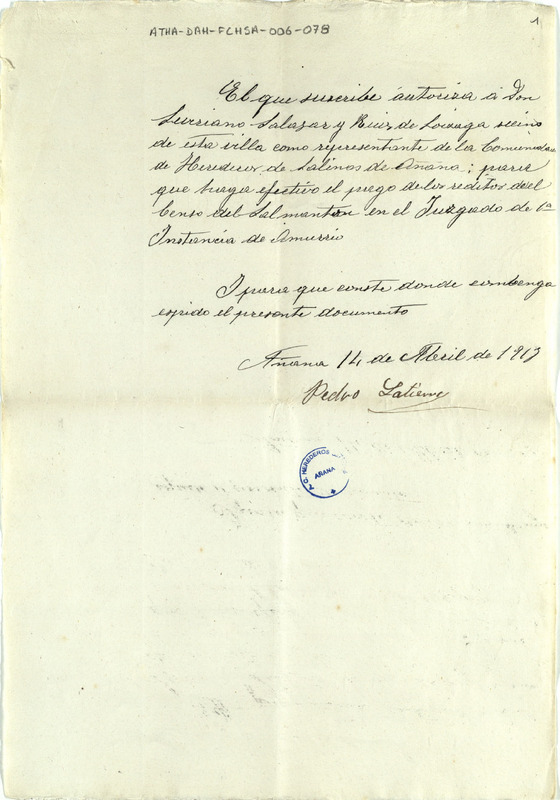 ATHA-DAH-FCHSA-006-078
1
El que suscribe autoriza á Don
Luciano Salazar y Ruiz de Loizaga vecino
de esta villa como representante de la Comunidad
de Herederos de Salinas de Añana; para
que haga efectivo el pago de los reditos del
Censo del Salmanton en el Juzgado de 1ª
Instancia de Amurrio
I para que conste donde combenga
espido el presente documento
Añana 14 de Abril de 1913
Pedro
HEREDEROS
AÑANA